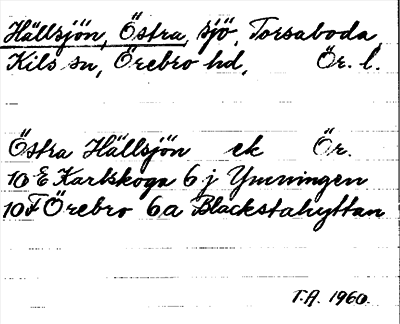 Hällsjön, Östra, sjö, Torsaboda,
Kils sn, Örebro hd, Ör. l.
Östra Hällsjön ek Ör.
10 E Karlskoga 6 j Ymningen
10 F Örebro 6a Blackstahyttan
T.A. 1960.